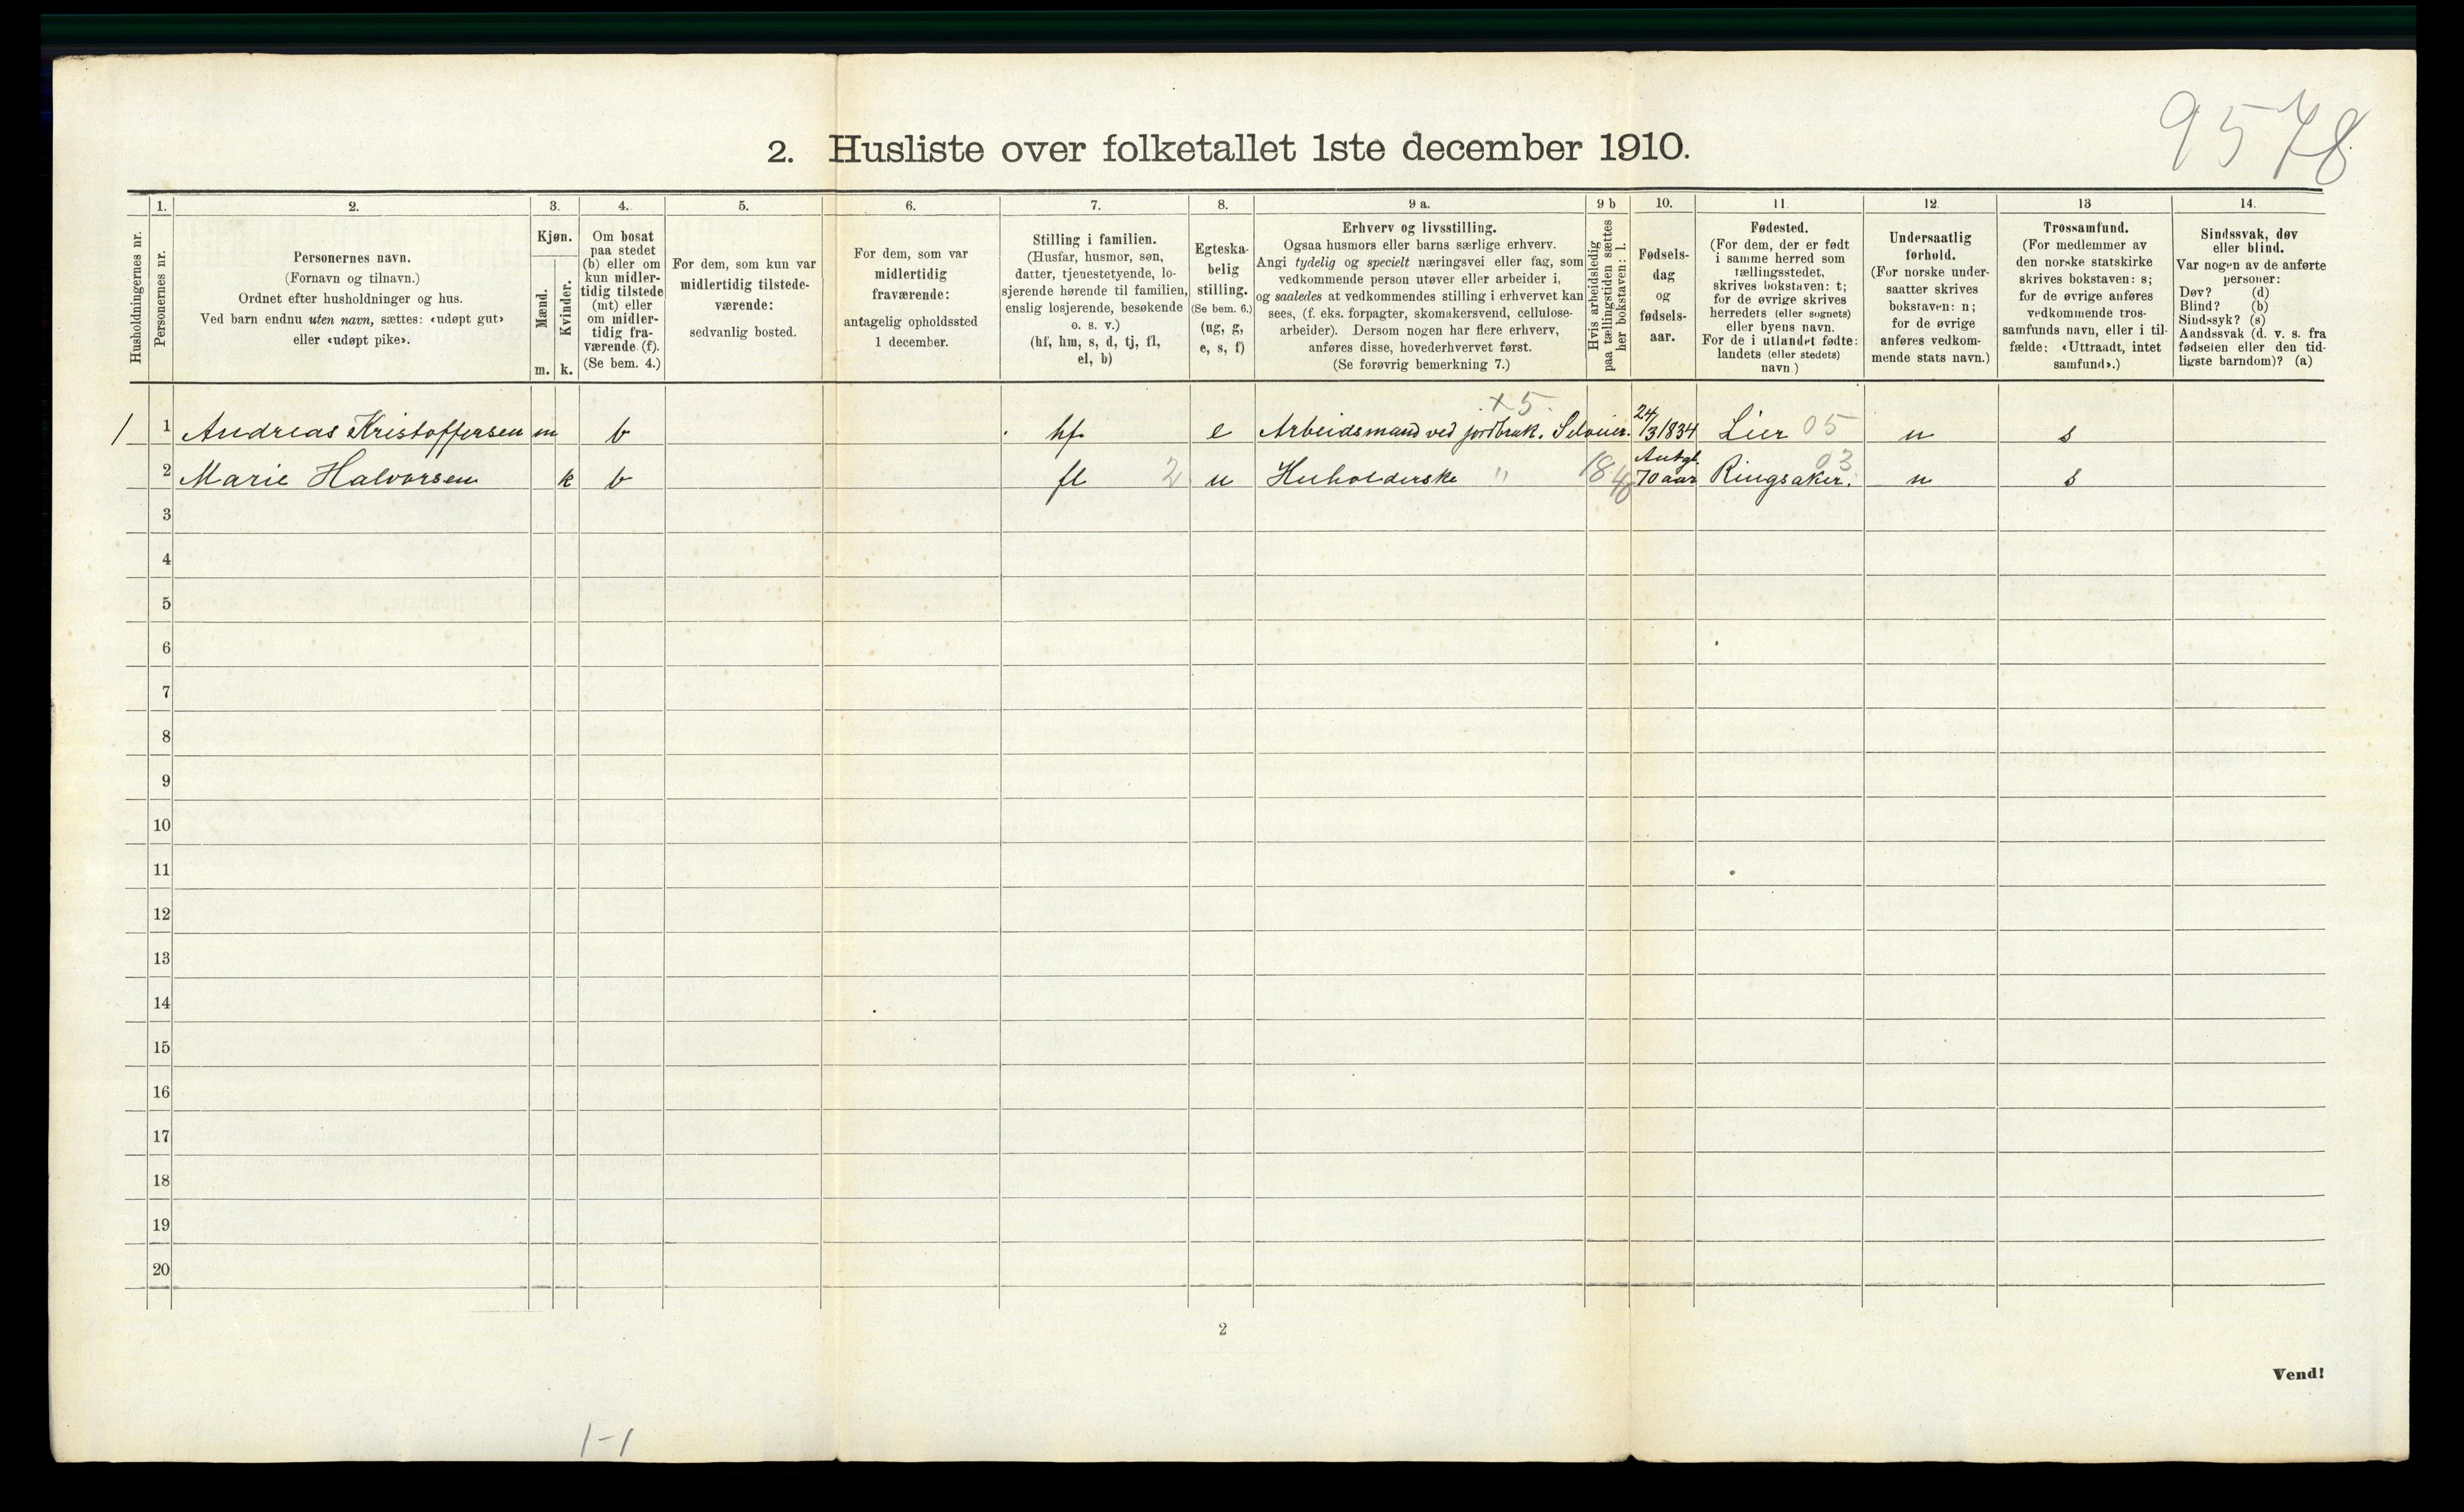 9578
2. Husliste over folketallet 1ste december 1910.
Husholdningernes nr.
1.
Personernes nr.
2.
Personernes navn.
(Fornavn og tilnavn.)
Ordnet efter husholdninger og hus.
Ved barn endnu uten navn, sættes: «udøpt gut»
eller «udøpt pike».
3.
Kjøn.
Mænd.
Kvinder.
m. k.
4.
Om bosat
paa stedet
(b) eller om
kun midler-
tidig tilstede
(mt) eller
om midler-
tidig fra-
værende (f).
(Se bem. 4.)
5.
For dem, som kun var
midlertidig tilstede-
værende:
sedvanlig bosted.
6.
For dem, som var
midlertidig
fraværende:
antagelig opholdssted
1 december.
7.
Stilling i familien.
(Husfar, husmor, søn,
datter, tjenestetyende, lo-
sjerende hørende til familien,
enslig losjerende, besøkende
o. s. v.)
(hf, hm, s, d, tj, fl,
el, b)
8.
Egteska-
belig
stilling.
(Se bem. 6.)
(ug, g,
e, s, f)
9 a.
Erhverv og livsstilling.
Ogsaa husmors eller barns særlige erhverv.
Angi tydelig og specielt næringsvei eller fag, som
vedkommende person utøver eller arbeider i,
og saaledes at vedkommendes stilling i erhvervet kan
sees, (f. eks. forpagter, skomakersvend, cellulose-
arbeider). Dersom nogen har flere erhverv,
anføres disse, hovederhvervet først.
(Se forøvrig bemerkning 7.)
9 b
Hvis arbeidsledig
paa tællingstiden sættes
her bokstaven: l.
10.
Fødsels-
dag
og
fødsels-
aar.
11.
Fødested.
(For dem, der er født
i samme herred som
tællingsstedet,
skrives bokstaven: t;
for de øvrige skrives
herredets (eller sognets)
eller byens navn.
For de i utlandet fødte:
landets (eller stedets)
navn.)
12.
Undersaatlig
forhold.
(For norske under-
saatter skrives
bokstaven: n;
for de øvrige
anføres vedkom-
mende stats navn.)
13
Trossamfund.
(For medlemmer av
den norske statskirke
skrives bokstaven: s;
for de øvrige anføres
vedkommende tros-
samfunds navn, eller i til-
fælde: «Uttraadt, intet
samfund».)
14.
Sindssvak, døv
eller blind.
Var nogen av de anførte
personer:
Døv? (d)
Blind? (b)
Sindssyk? (s)
Aandssvak (d. v. s. fra
fødselen eller den tid-
ligste barndom)? (a)
x 5.
1 1 Andreas Kristoffersen m b hf e Arbeidsmand ved jordbruk. Seloeier. 24/3 1834 Lier 05 n s
2 Marie Halvorsen k b fl 2 u Huholderske " 1840 Antgl. 70 aar Ringsaker. 03 n s
3
4
5
6
7
8
9
10
11
12
13
14
15
16
17
18
19
20
2
Vend!
1-1